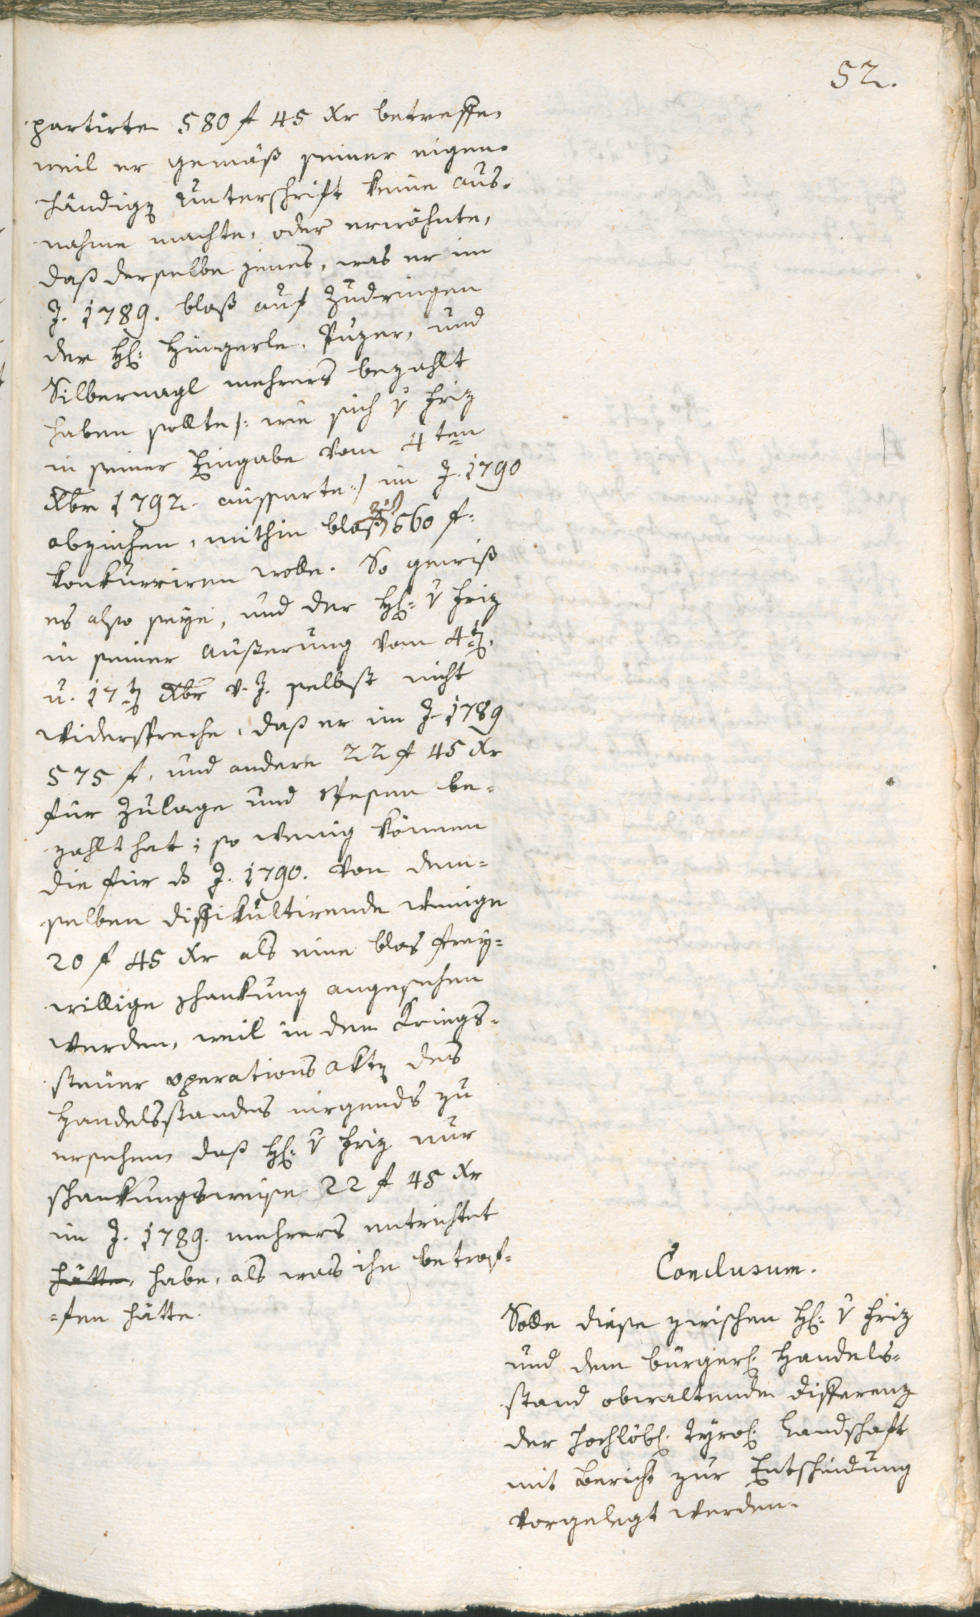 52.
partirte 580 f 45 xr betreffe,
weil er gemäß seiner eigen-
händigen Unterschrift keine aus-
nahme machte, oder erwähnte,
daß derselbe jenes, was er im
J. 1789. blos auf Zudringen
der HH: Hingerle, Puzer, und
Silbernagl mehrers bezahlt
haben sollte /: wie sich v Friz
in seiner Eingabe vom 4ten
Xbr 1792. äussarte :/ im J. 1790
abziehen, mithin blos 560 f:
konkurriren wolle. So gewiß
es also seye, und der H: v Friz
in seiner äußerung vom 4ten
u. 17ten Xbr v. J. selbst nicht
widerspreche, daß er im J. 1789
575 f, und andere 22 f 45 xr
für Zulage und Spesen be-
zahlt hat; so wenig können
die für d J. 1790. von dem-
selben diffikultirende wenige
20 f 45 xr als eine blos frey-
willige schankung angesehen
werden, weil in den Kriegs-
steuer operations akten des
Handelsstandes nirgends zu
ersehen, daß H: v Friz nur
schankungsweise 22 f 45 xr
im J. 1789. mehrers entrichtet
hätte, habe, als was ihn betrof-
fen hätte.
Conclusum.
Solle diese zwischen H: v Friz
und dem bürgerl: Handels-
stand obwaltende differenz
der hochlöbl: Tyrol: Landschaft
mit Bericht zur Entscheidung
vorgelegt werden.